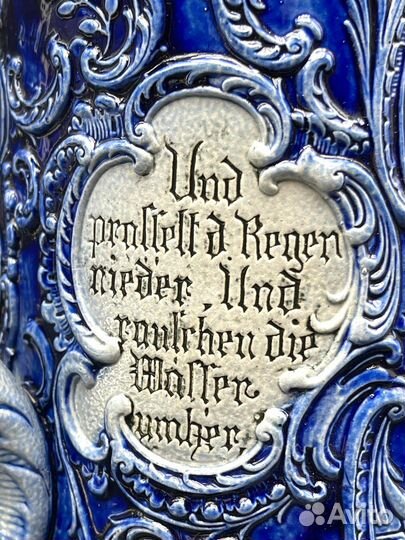 Und
prasselt d. Regen
nieder, Und
rauschen die
Wasser
umher
Avito